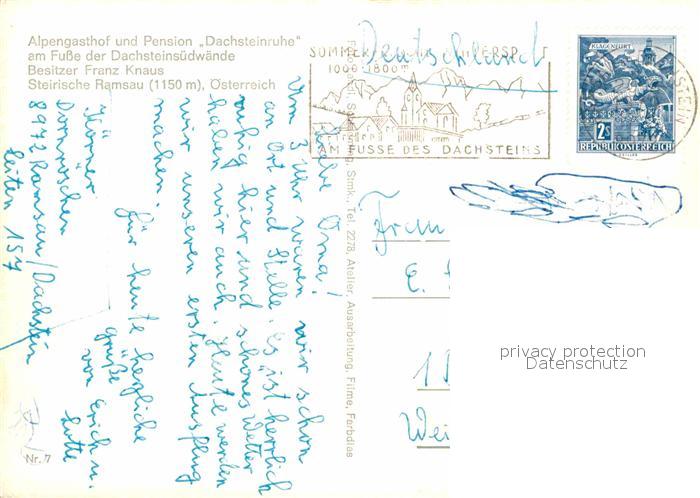 Alpengasthof und Pension „Dachsteinruhe"
am Fuße der Dachsteinsüdwände
Besitzer Franz Knaus
Steirische Ramsau (1150 m), Österreich
Liebe Oma!
Um 3 Uhr waren wir schon
an Ort und Stelle. Es ist herrlich
ruhig hier und schönes Wetter
haben wir auch. Heute werden
wir unseren ersten Ausflug
machen.
Für heute herzliche
Grüße
von Erich u.
Lotte
8972 Ramsau/Dachstein
Leiten 154
Nr. 7
Tel. 2278, Atelier, Ausarbeitung, Filme, Farbdias
Deutschland
1000-1800m
AM FUSSE DES DACHSTEINS
KLAGENFURT
2S
REPUBLIK ÖSTERREICH
privacy protection
Datenschutz